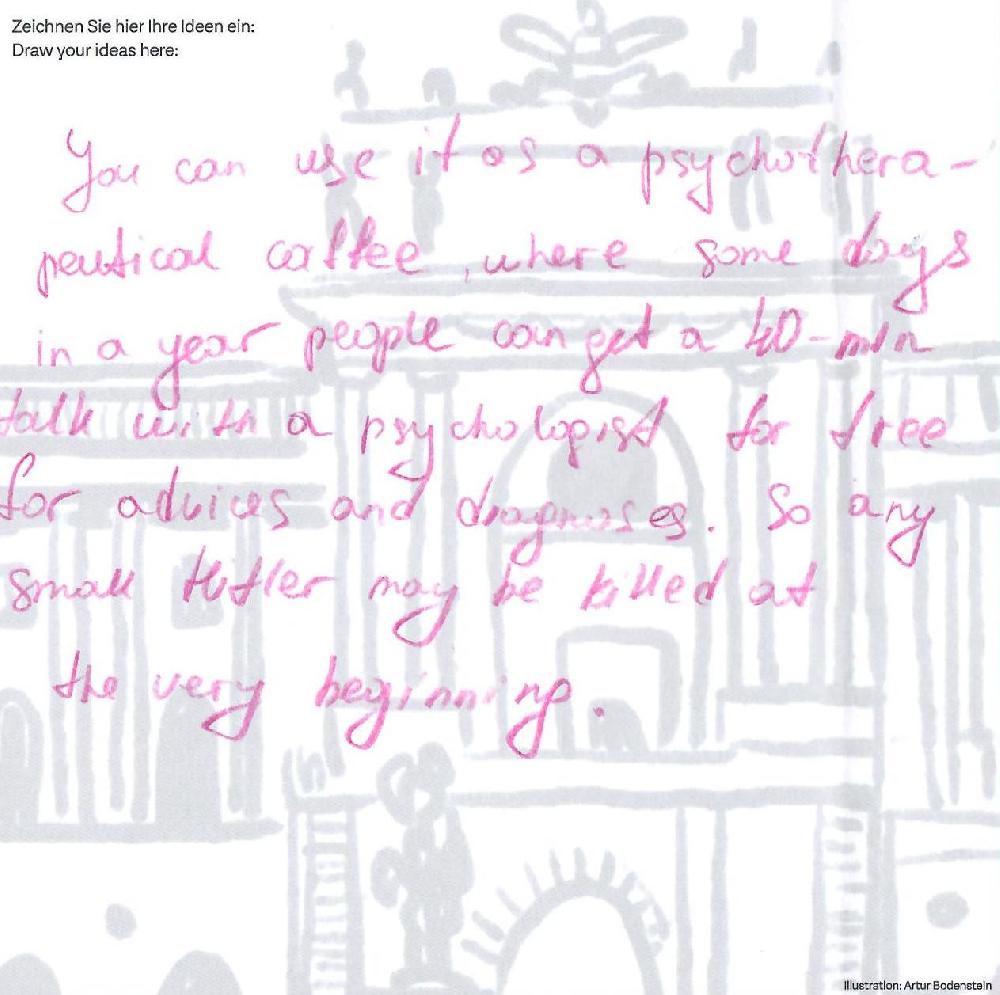 Zeichnen Sie hier Ihre Ideen ein:
Draw your ideas here:
You can use it as a psychothera-
peutical caffee, where some days
in a year people can get a 40-min
talk with a psychologist for free
for advices and diagnoses. So any
small Hitler may be killed at
the very beginning.
Illustration: Artur Bodenstein